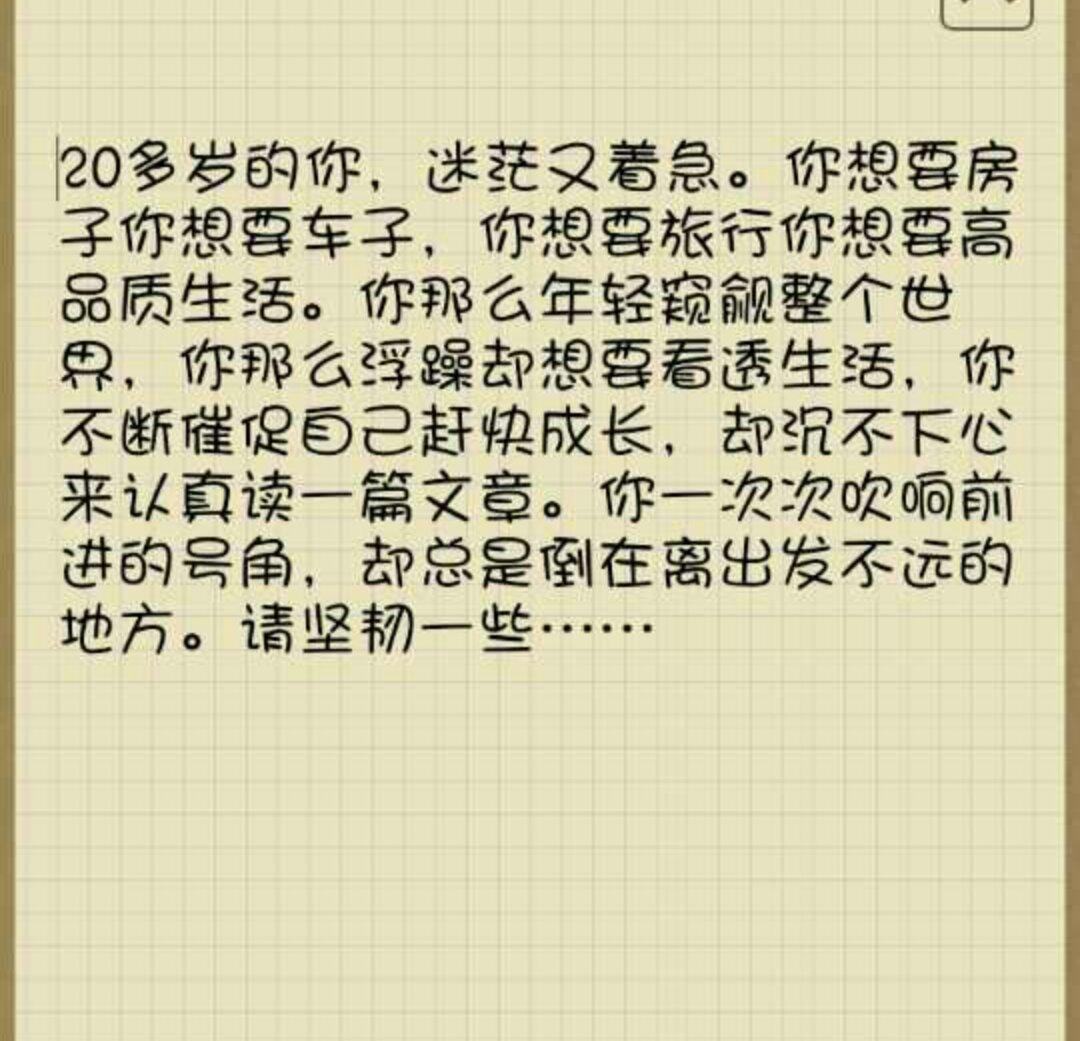 20多岁的你，迷茫又着急。你想要房
子你想要车子，你想要旅行你想要高
品质生活。你那么年轻窥觎整个世
界，你那么浮躁却想要看透生活，你
不断催促自己赶快成长，却沉不下心
来认真读一篇文章。你一次次吹响前
进的号角，却总是倒在离出发不远的
地方。请坚韧一些……